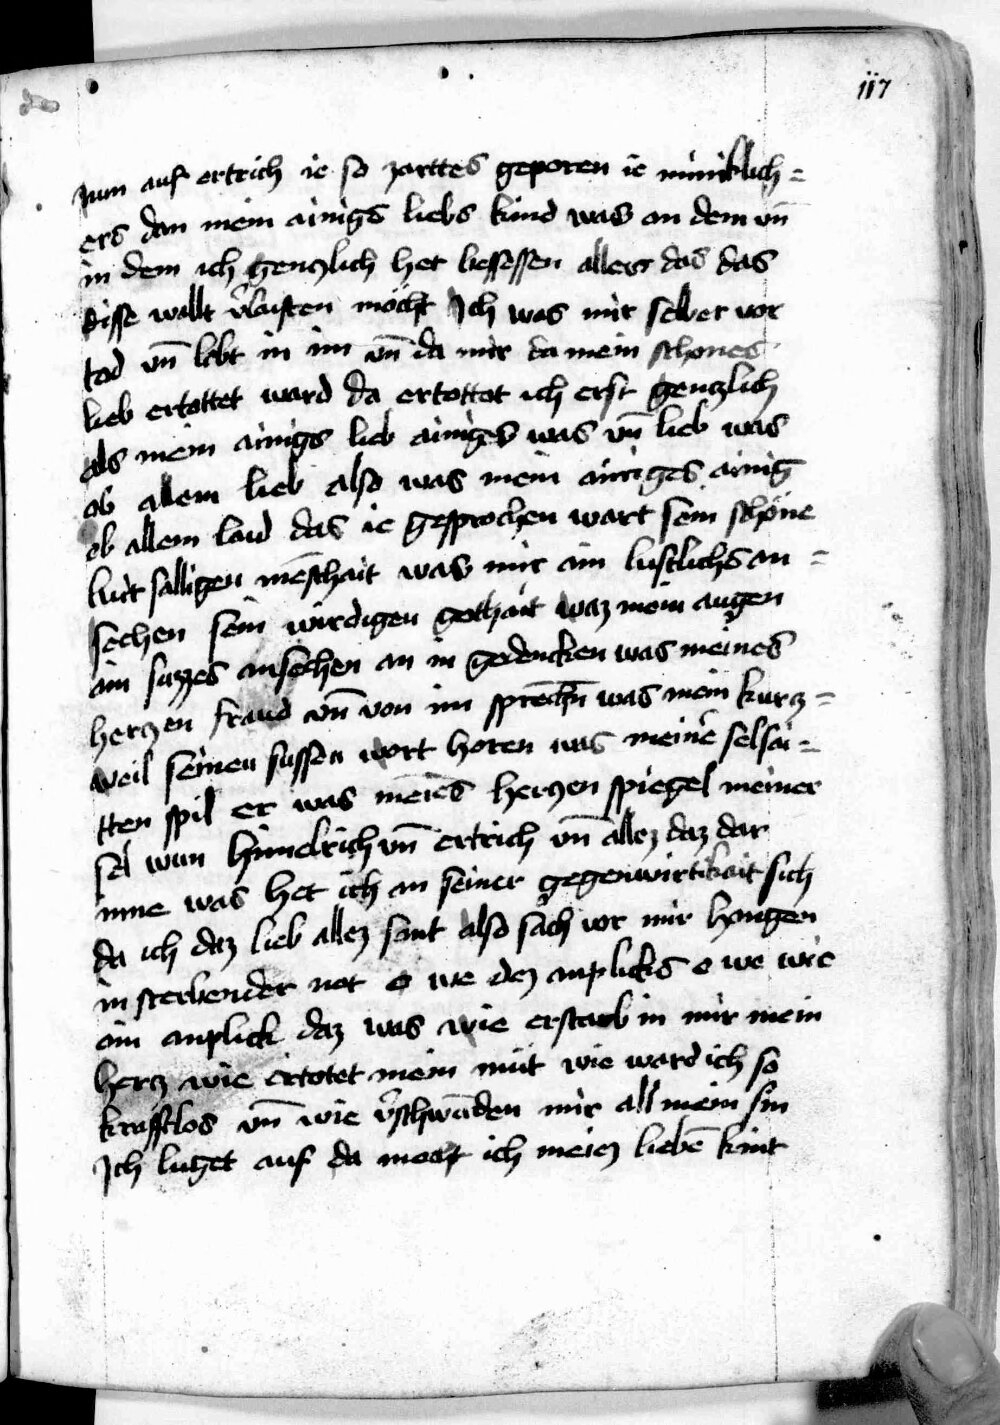 117
Jum auf ertrich ie so zarttes geporen ie minklich=
ers dan mein ainigs liebs kind was an dem vn̄
in dem ich genczlich het bessessen alles das das
disse wallt v̾laisten möcht Ich was mir selber vor
tod vn̄ lebt in im vn̄ da mir da mein schones
lieb ertottet ward da ertottot ich erst genczlich
als mein ainigs lieb ainiges was vn̄ lieb was
ob allem lieb also was mein ainiges ainig
ob allem laid das ie gesprochen wart sein schöne
lutsalligen mēschait was mir ain lustlichs an=
sechen sein wirdigen gothait waz mein augen
ain suzzes ansechen an in gedencken was meines
herczen fraud vn̄ von im sprechn̄ was mein kurcz=
weil seinen sussen wort horen was meine̾ selsai=
tten spil er was meīes herczen spiegel meiner
sel wun himelrich vn̄ ertrich vn̄ allez daz dar
inne was het ich an seiner gegenwirtikait sich
da ich daz lieb allez sant also sach vor mir hangen
in sterbender not o we dez anplicks o we wie
ain anplick daz was wie erstarb in mir mein
hercz wie ertotet mein müt wie ward ich so
krafftlos vn̄ wie v̾schwūden mir all mein sin
Ich luget auf da mocht ich meiez liebē kint